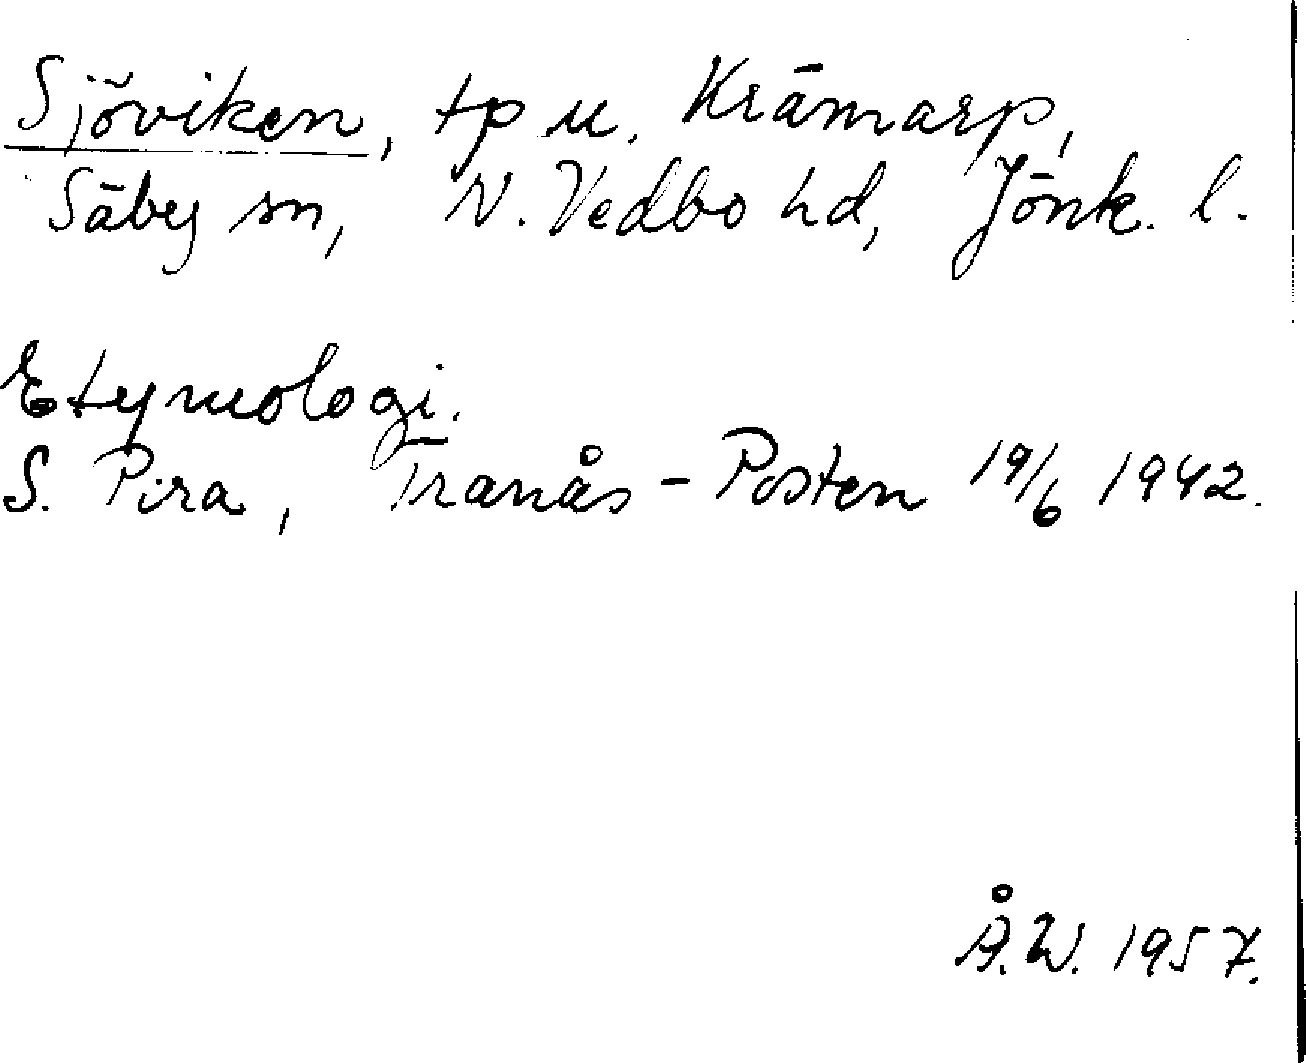 Sjöviken, tp u. Krämarp,
Säby sn, N. Vedbo hd, Jönk. l.
Etymologi.
S. Pira, Tranås-Posten 19/6 1942.
Å.W. 1957.